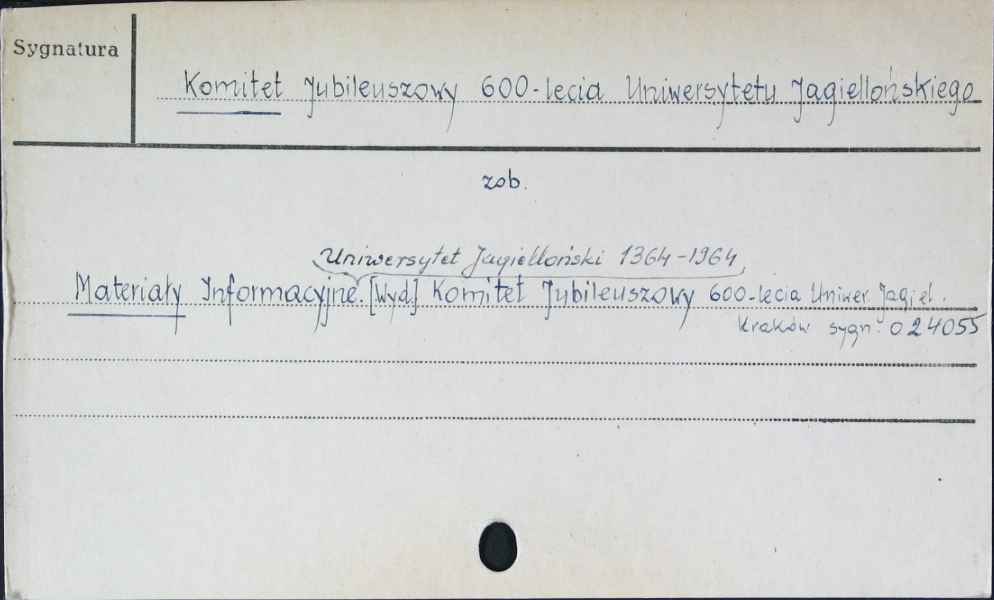 Sygnatura
Komitet Jubileuszowy 600-lecia Uniwersytetu Jagiellońskiego
zob.
Uniwersytet Jagielloński 1364-1964
Materiały Informacyjne. [Wyd.] Komitet Jubileuszowy 600-lecia Uniwer. Jagiel.
Kraków sygn: 024055